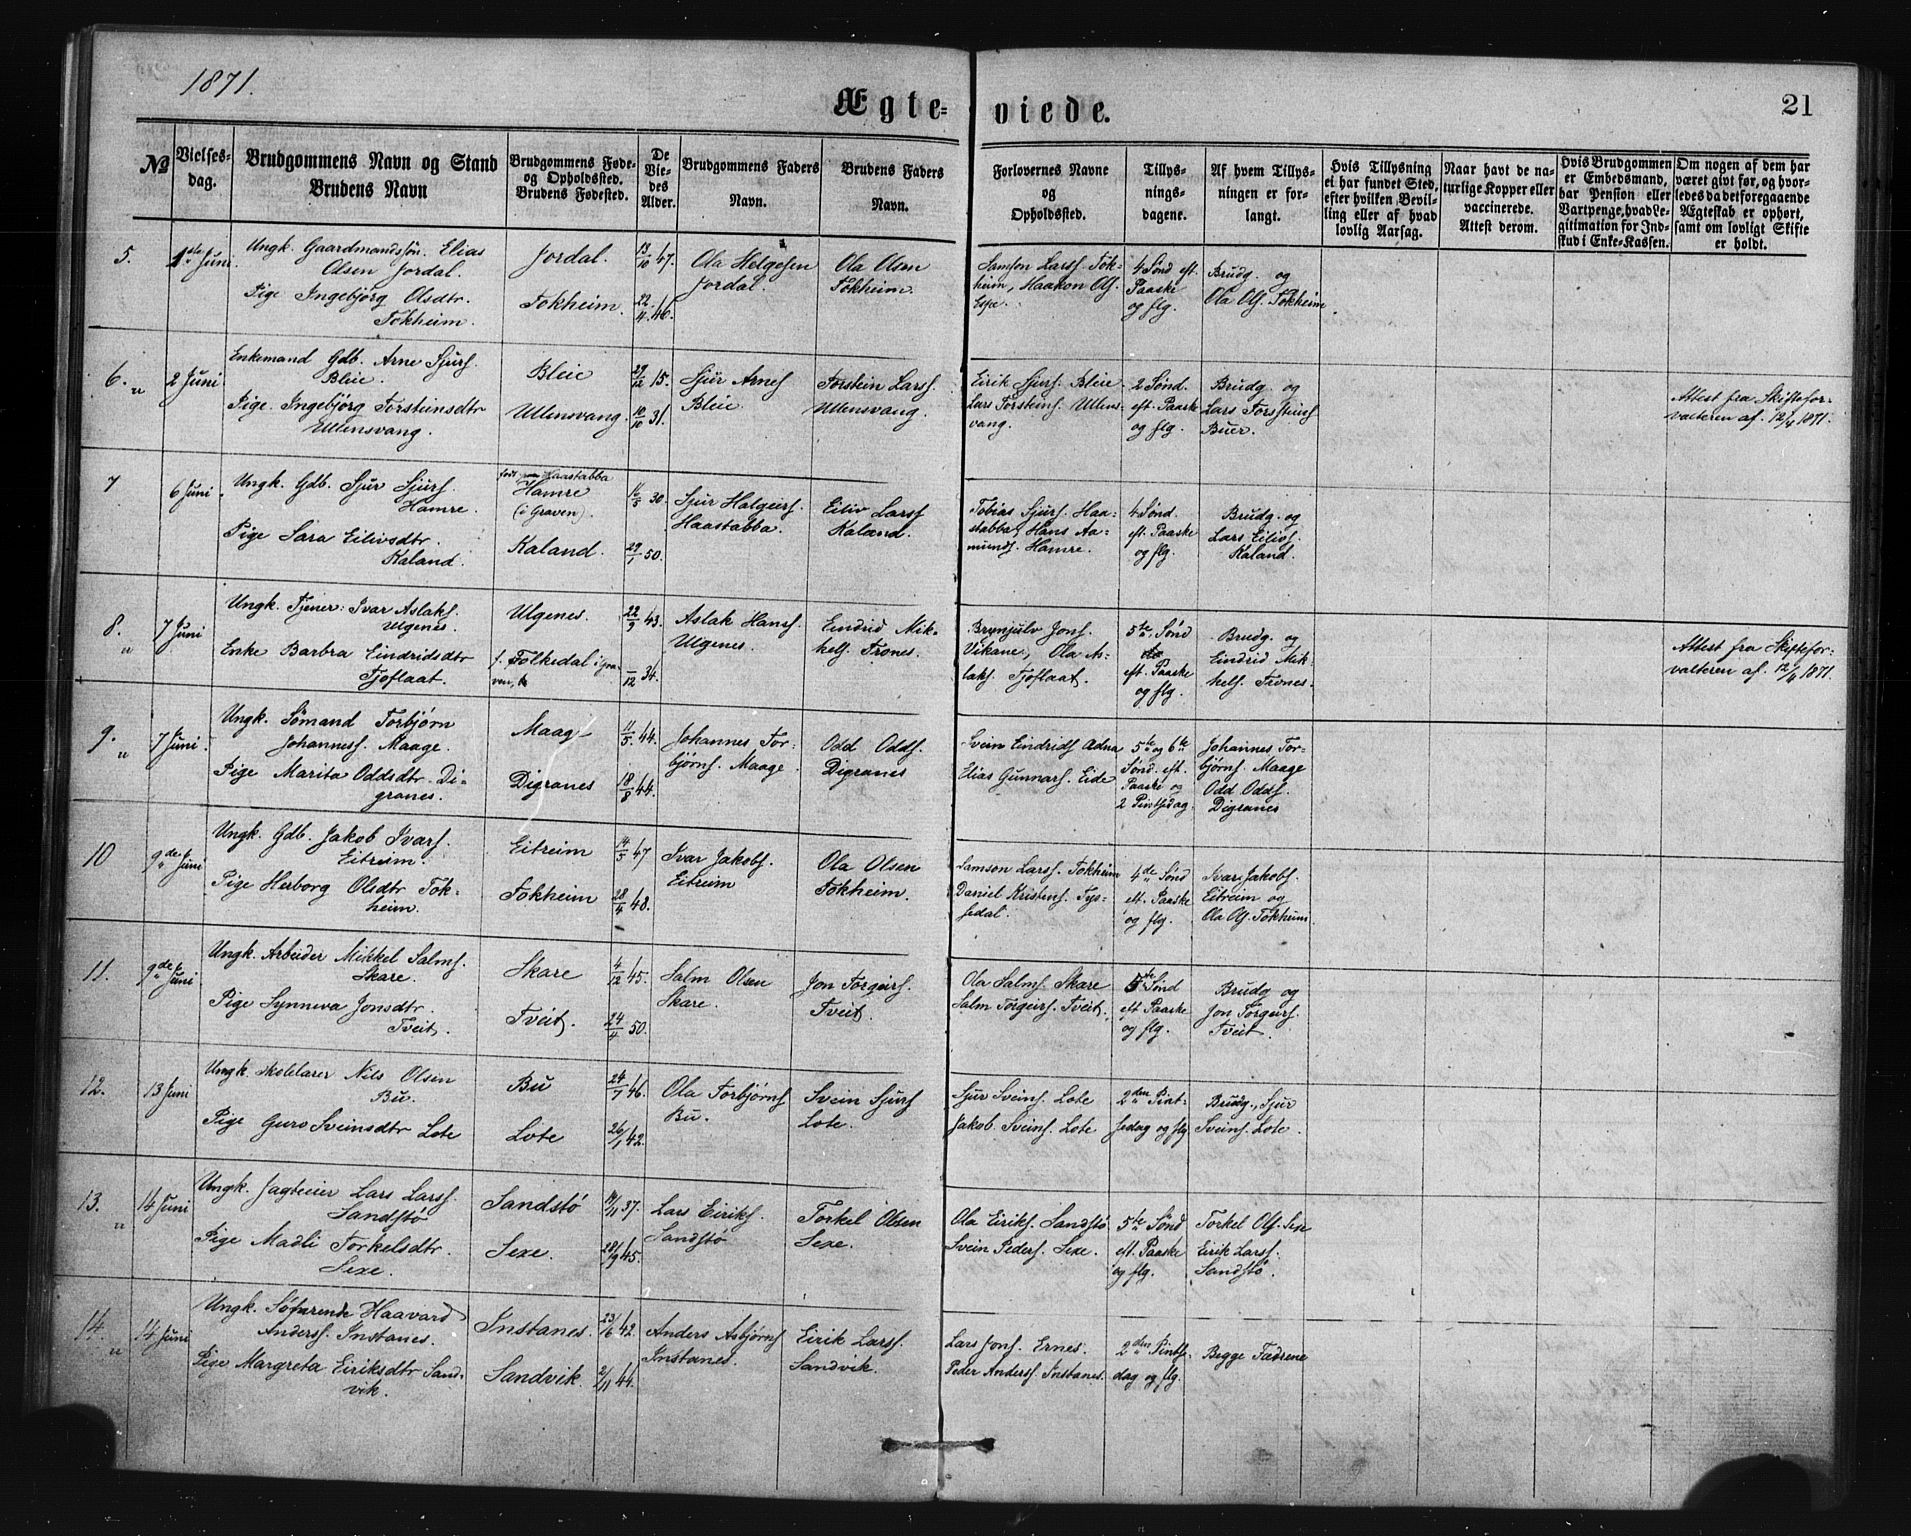 1871.
Ægte-viede.
21
No
Vielses-
dag.
Brudgommens Navn og Stand
Brudens Navn
Brudgommens Føde-
og Opholdssted.
Brudens Fødested.
De
Vie-
des
Alder.
Brudgommens Faders
Navn.
Brudens Faders
Navn.
Forlovernes Navne
og
Opholdssted.
Tillys-
nings-
dagene.
Af hvem Tillys-
ningen er for-
langt.
Hvis Tillysning
ei har fundet Sted,
efter hvilken Bevil-
ling eller af hvad
lovlig Aarsag.
Naar havt de na-
turlige Kopper eller
vaccinerede.
Attest derom.
Hvis Brudgommen
er Embedsmand,
har Pension eller
Vartpenge, hvad Le-
gitimation for Ind-
skud i Enke-Kassen.
Om nogen af dem har
været givt før, og hvor-
ledes da det foregaaende
Ægteskab er ophørt,
samt om lovligt Skifte
er holdt.
5.
1ste Juni.
Ungk. Gaardmandssøn. Elias
Olsen Jordal.
Pige Ingebjørg Olsdtr.
Tokheim.
Jordal.
Tokheim.
13/10 47.
22/4 46.
Ola Helgesen
Jordal.
Ola Olsen
Tokheim.
Samson Larss. Tok-
heim, Haakon Ols.
Espe.
4 Sønd eft.
Paaske
og flg.
Brudg. og
Ola Ols. Tokheim
6.
2 Juni.
Enkemand Gdb. Arne Sjurs.
Bleie.
Pige. Ingebjörg Torsteinsdtr
Ullensvang.
Bleie
Ullensvang.
29/12 15.
10/10 31.
Sjur Arnes
Bleie.
Torstein Larss.
Ullensvang.
Eirik Sjurs. Bleie
Lars Torsteins. Ullens-
vang.
2 Sønd.
eft. Paaske
og flg.
Brudg. og
Lars Torsteins
Buer.
Attest fra Skiftefor-
valteren af. 12/4 1871.
7
6 Juni.
Ungk. Gdb. Sjur Sjurs.
Hamre.
Pige Sara Eilivsdtr.
Kaland.
født Haastabba
Hamre
(i Graven).
Kaland.
16/5 30.
29/1 50.
Sjur Halgeirs.
Haastabba.
Eiliv Larss
Kaland.
Tobias Sjurs. Haa-
stabba, Hans Aa-
munds. Hamre.
4 Sønd.
eft. Paaske
og flg.
Brudg. og
Lars Eilivs.
Kaland.
8.
7 Juni
Ungk. Tjener: Ivar Aslaks.
Ulgenes.
Enke Barbra Eindridsdtr
Tjoflaat.
Ulgenes.
f. Folkedal i Gra-
ven,
22/9 43.
/12 34.
Aslak Hanss.
Ulgenes.
Eindrid Mik-
kels. Trones.
Brynjulv Jons.
Vikane, Ola As-
laks. Tjoflaat.
5te Sønd
eft. Paaske
og flg.
Brudg. og
Eindrid Mik-
kels. Trones.
Attest fra Skiftefor-
valteren af. 12/4 1871.
9.
7 Juni.
Ungk. Sömand Torbjørn
Johanness. Maage.
Pige Marita Oddsdtr. Di-
granes.
Maage
Digranes
11/5 44.
18/8 44.
Johannes Tor-
bjørns. Maage.
Odd Odds.
Digranes
Svein Eindrids Adna
Elias Gunnars. Eide
5te og 6te
Sønd. eft.
Paaske og
2 Pintsedag.
Johannes Tor-
bjørns. Maage
Odd Odds.
Digranes
10
9de Juni
Ungk. Gdb. Jakob Ivars.
Eitreim.
Pige Herborg Olsdtr Tok-
heim.
Eitreim
Tokheim
14/5 47
28/4 48.
Ivar Jakobs.
Eitreim
Ola Olsen
Tokheim.
Samson Larss. Tokheim
Daniel Kristens. Tys-
sedal.
4de Sønd
eft. Paaske
og flg.
Ivar Jakobs.
Eitreim og
Ola Ols. Tokheim
11.
9de Juni
Ungk. Arbeider Mikkel Salms.
Skare.
Pige Synneva Jonsdtr.
Tveit.
Skare
Tveit.
4/12 45.
24/4 50.
Salm Olsen
Skare.
Jon Torgeirs.
Tveit.
Ola Salms. Skare
Salm Torgeirs. Tveit.
5te Sønd
eft Paaske
og flg.
Brudg og
Jon Torgeirs.
Tveit.
12.
13 Juni
Ungk. Skolelærer Nils Olsen
Bu.
Pige Guro Sveinsdtr Lote
Bu
Lote
24/7 46.
26/1 42.
Ola Torbjørns
Bu.
Svein Sjurs
Lote.
Sjur Sveins. Lote
Jakob Sveins. Lote
2den Pint-
sedag og flg
Brudg., Sjur
Sveins. Lote.
13.
14 Juni
Ungk. Jagteier Lars Larss.
Sandstø
Pige Madli Torkelsdtr.
Sexe.
Sandstø
Sexe.
14/11 37.
28/9 45.
Lars Eiriks.
Sandstø
Torkel Olsen
Sexe.
Ola Eiriks. Sandstø
Svein Peders. Sexe.
5te Sønd
eft. Paaske
og flg.
Torkel Ols. Sexe
Eirik Larss.
Sandstø.
14.
14 Juni
Ungk. Søfarende Haavard
Anderss. Instanes.
Pige Margreta Eiriksdtr Sand-
vik.
Instanes.
Sandvik.
23/6 42.
2/11 44.
Anders Asbjørns
Instanes.
Eirik Larss.
Sandvik.
Lars Jons. Ernes.
Peder Anderss. Instanes.
2den Pintse-
dag og flg.
Begge Fædrene